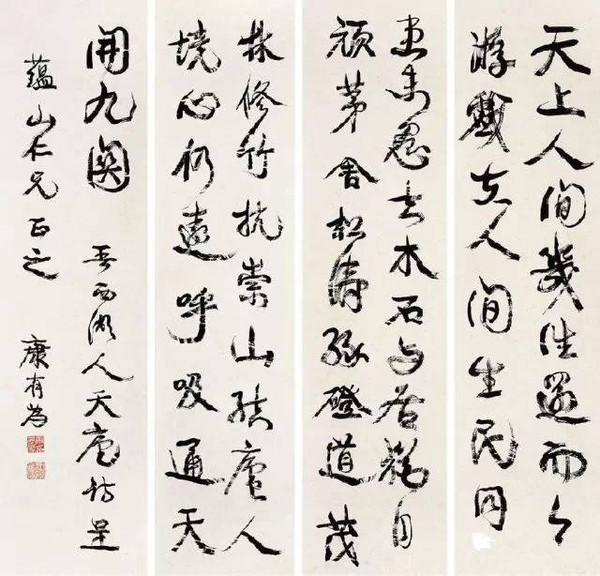 天上人間幾往還而今
游戲在人間生民同
患未忍去木石與居聊自
頑茅舍松濤緣磴道茂
林修竹抗崇山結廬人
境心仍遠呼吸通天
開九關 吾西湖人天廬詩呈
蘊山仁兄正之 康有為